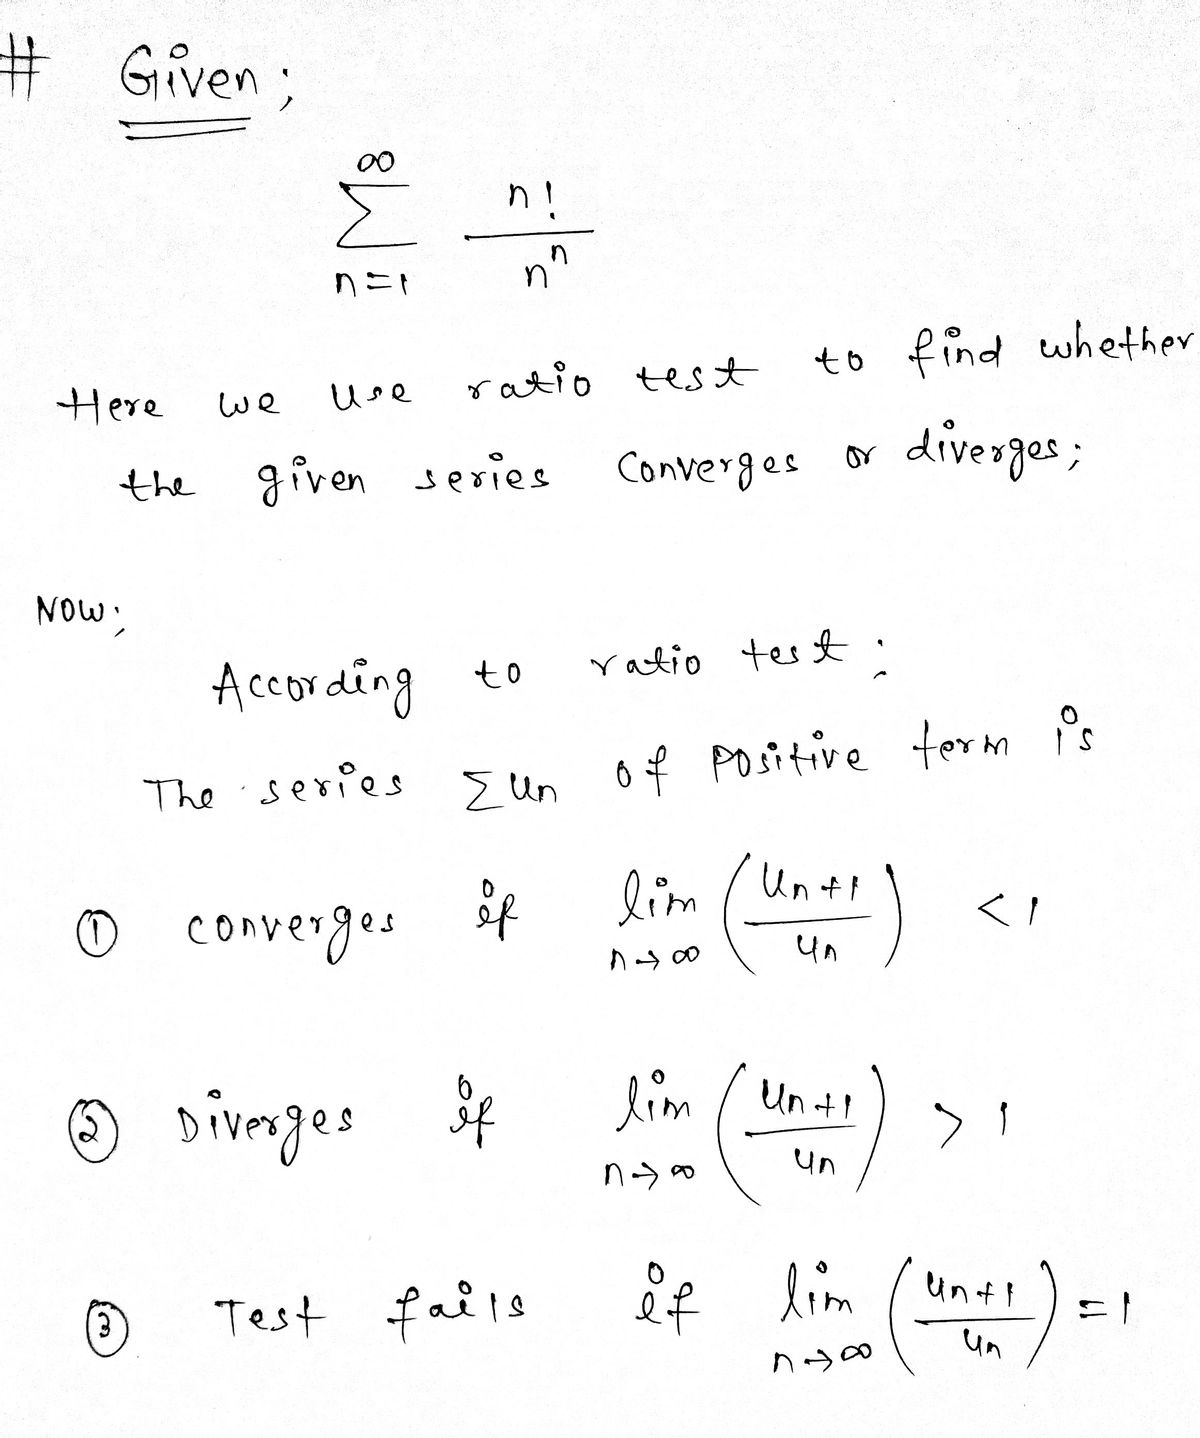 # Given;
∞
∑ n!
n=1 nⁿ
Here we use ratio test to find whether
the given series Converges or diverges;
NOW;
According to ratio test:
The series ∑un of positive term is
① converges if lim (un+1/un) < 1
n→∞
② Diverges if lim (un+1/un) > 1
n→∞
③ Test fails if lim (un+1/un) = 1
n→∞